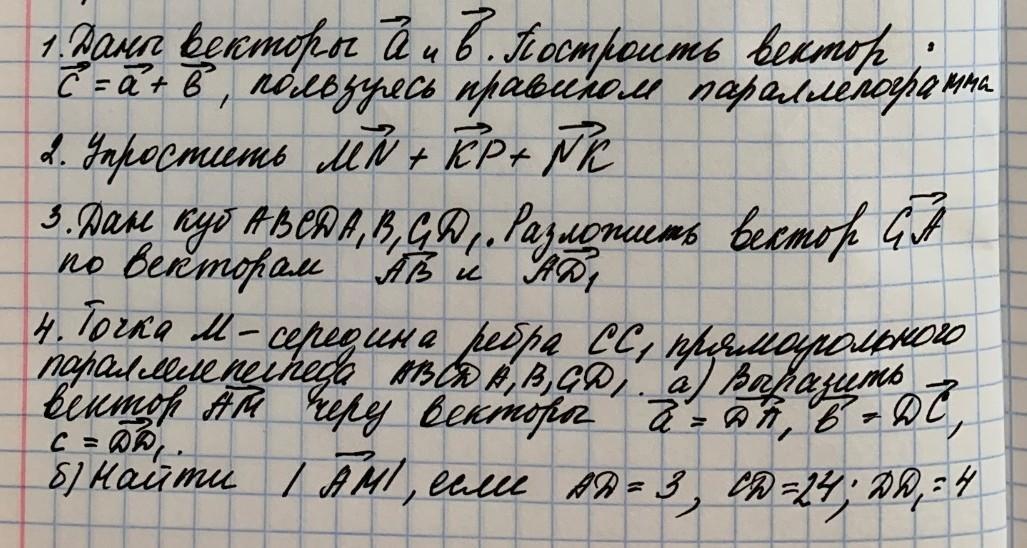 1. Даны векторы a⃗ и b⃗. Построить вектор
c⃗ = a⃗ + b⃗, пользуясь правилом параллелограмма
2. Упростить MN⃗ + KP⃗ + NK⃗
3. Дан куб ABCDA₁B₁C₁D₁. Разложить вектор C₁A⃗
по векторам AB⃗ и AD₁⃗
4. Точка M – середина ребра CC₁ прямоугольного
параллелепипеда ABCDA₁B₁C₁D₁. а) Выразить
вектор AM⃗ через векторы a⃗ = DA⃗, b⃗ = DC⃗,
c = DD₁⃗.
б) Найти |AM⃗|, если AD = 3, CD = 24; DD₁ = 4